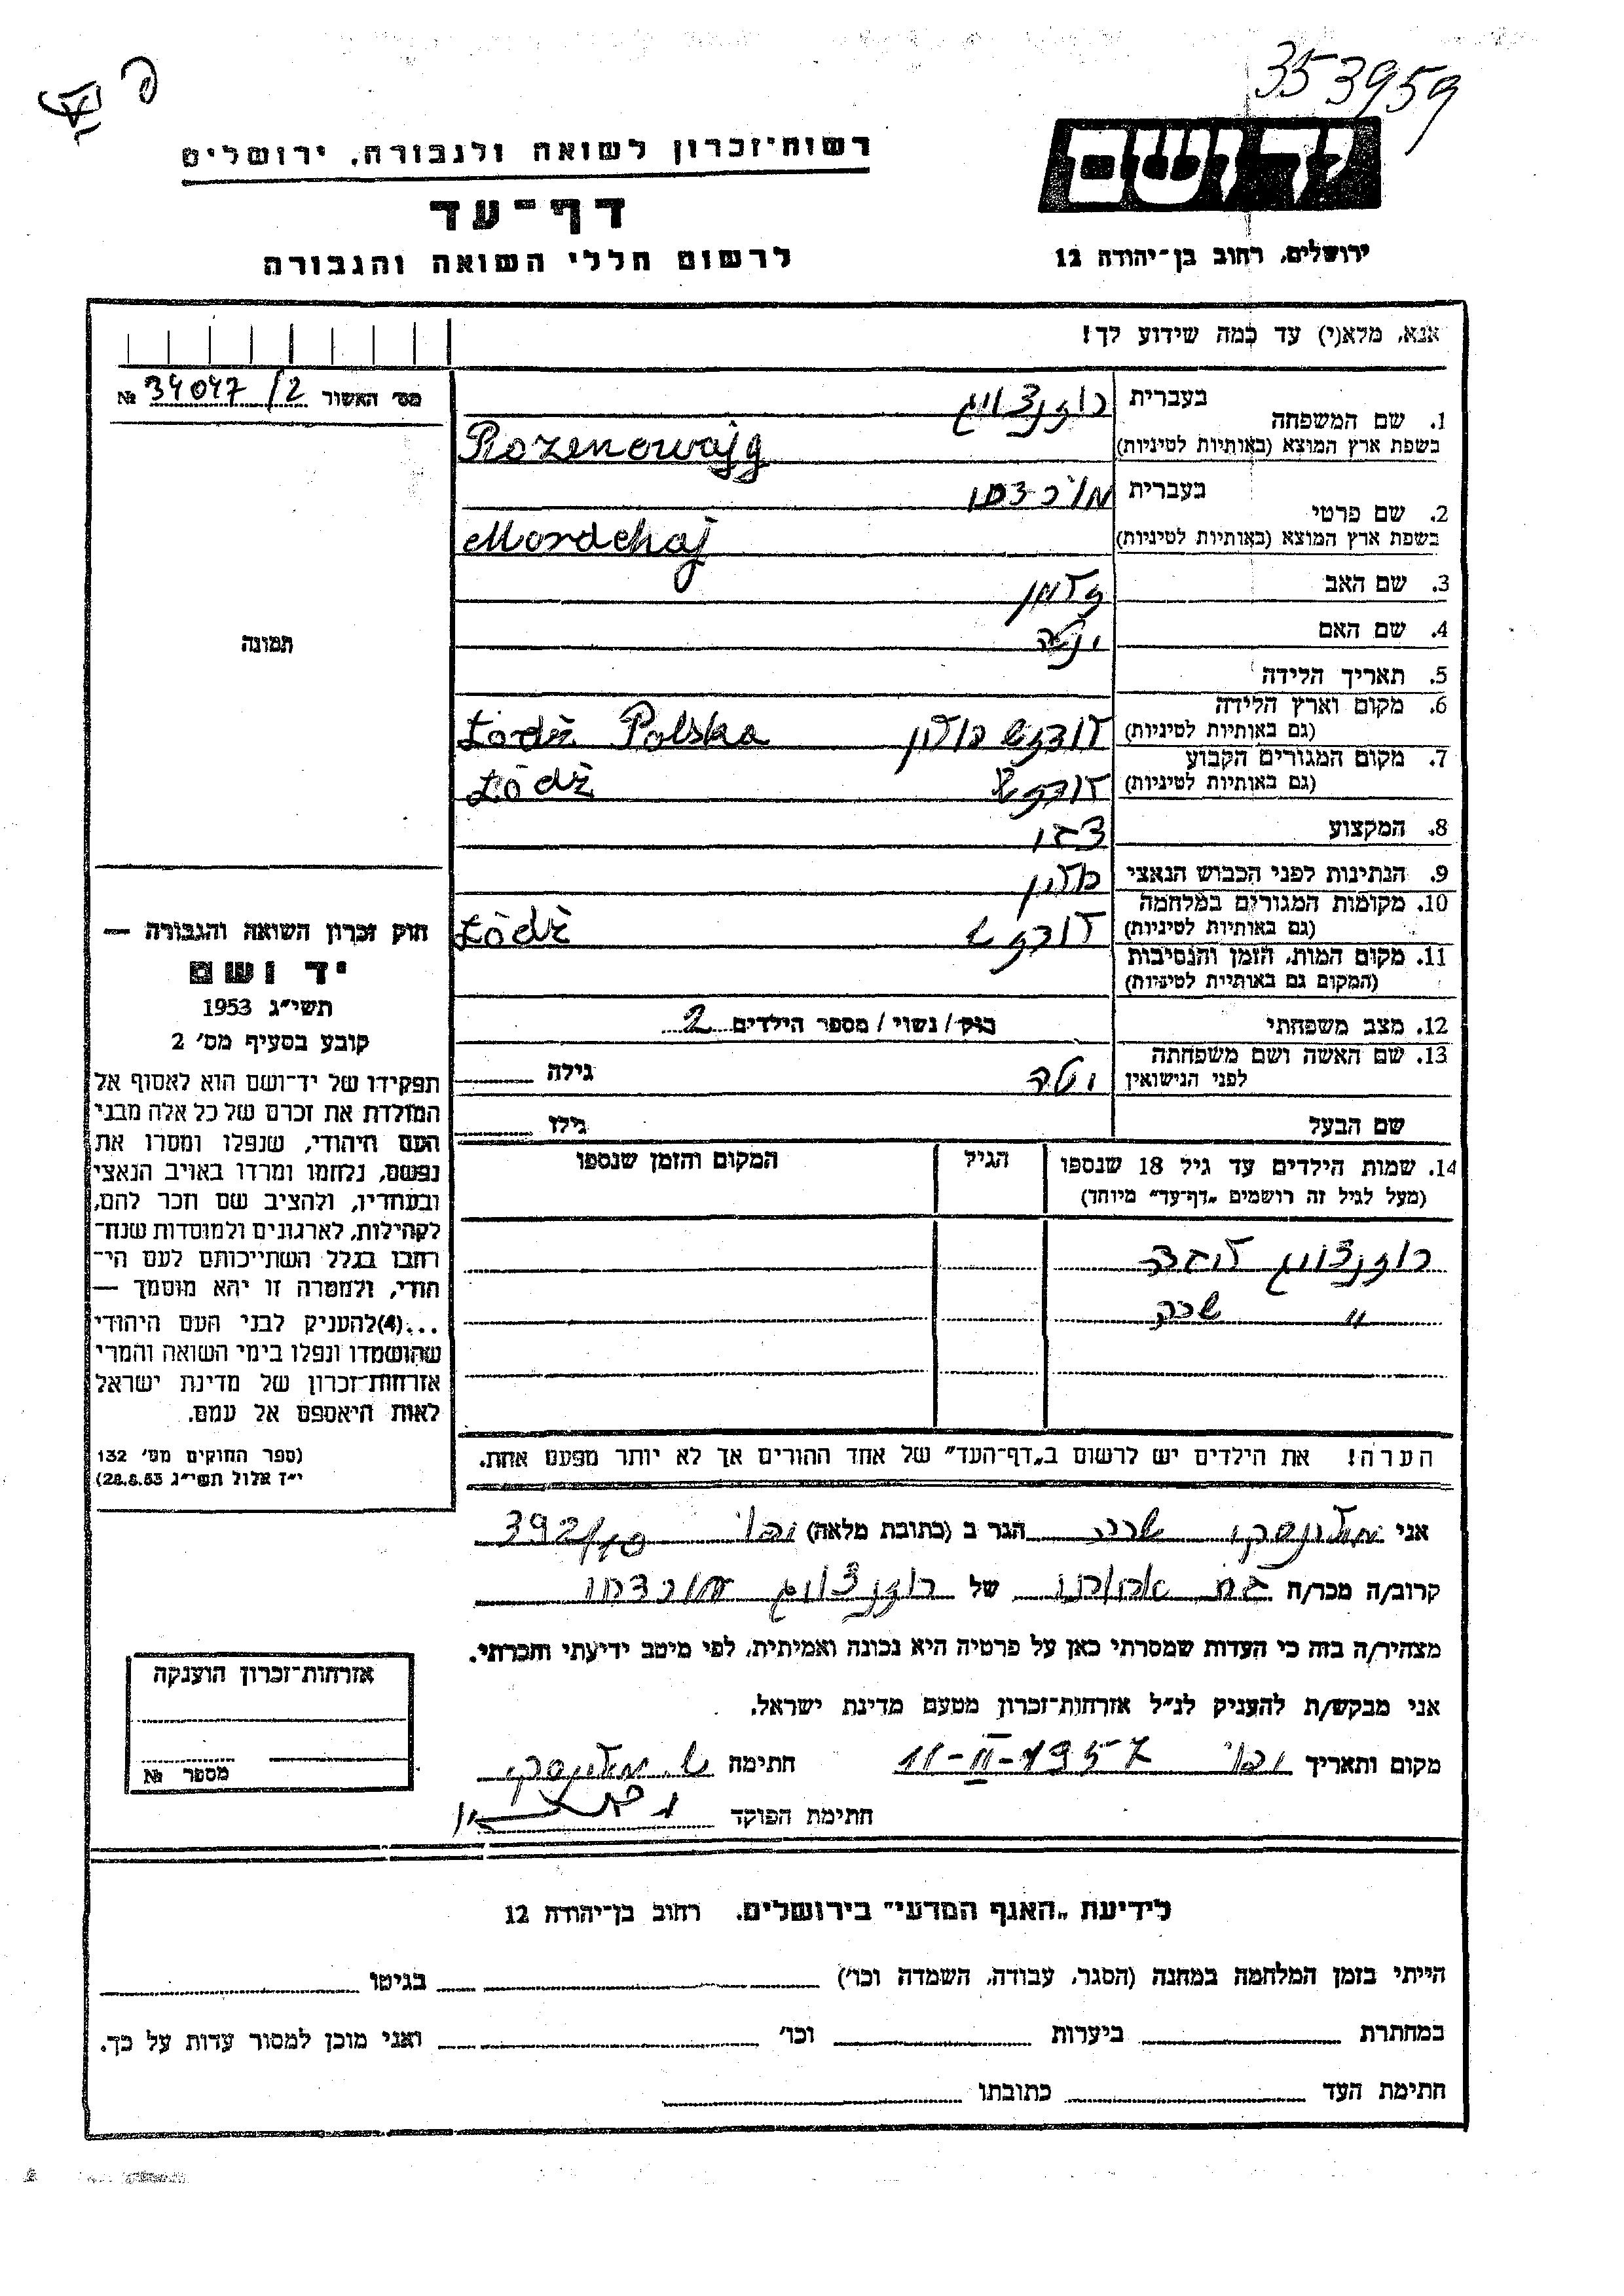 353959
רשות־זכרון לשואה ולגבורה, ירושלים
יד ושם
דף־עד
לרשום חללי השואה והגבורה
ירושלים, רחוב בן־יהודה 12
אנא, מלא(י) עד כמה שידוע לך!
מס׳ האשור № 34047/2
1. שם המשפחה בעברית רוזנצויג
בשפת ארץ המוצא (באותיות לטיניות) Rozenowajg
2. שם פרטי בעברית מורדכי
בשפת ארץ המוצא (באותיות לטיניות) Mordchaj
3. שם האב זלמן
4. שם האם
5. תאריך הלידה
6. מקום וארץ הלידה
(גם באותיות לטיניות) לודז׳ פולין Łòdź Polska
7. מקום המגורים הקבוע
(גם באותיות לטיניות) לודז׳ Łòdź
8. המקצוע
9. הנתינות לפני הכבוש הנאצי פולין
10. מקומות המגורים במלחמה
(גם באותיות לטיניות) לודז׳ Łòdź
11. מקום המות, הזמן והנסיבות
(המקום גם באותיות לטיניות)
12. מצב משפחתי רוק/נשוי/מספר הילדים 2
13. שם האשה ושם משפחתה
לפני הנישואין גילה
שם הבעל גילו
14. שמות הילדים עד גיל 18 שנספו הגיל המקום והזמן שנספו
(מעל לגיל זה רושמים „דף־עד״ מיוחד)
רוזנצויג
״ שרה
הערה! את הילדים יש לרשום ב„דף־העד״ של אחד ההורים אך לא יותר מפעם אחת.
תמונה
חוק זכרון השואה והגבורה —
יד ושם
תשי״ג 1953
קובע בסעיף מס׳ 2
תפקידו של יד־ושם הוא לאסוף אל
המולדת את זכרם של כל אלה מבני
העם היהודי, שנפלו ומסרו את
נפשם, נלחמו ומרדו באויב הנאצי
ובעוזריו, ולהציב שם וזכר להם,
לקהילות, לארגונים ולמוסדות שנח־
רבו בגלל השתייכותם לעם הי־
הודי, ולמטרה זו יהא מוסמך —
...(4)להעניק לבני העם היהודי
שהושמדו ונפלו בימי השואה והמרי
אזרחות־זכרון של מדינת ישראל
לאות היאספם אל עמם.
(ספר החוקים מס׳ 132
י״ז אלול תשי״ג 28.8.53)
אני שרה הגר ב (כתובת מלאה) 392/10
קרוב/ה מכר/ה של רוזנצויג מורדכי
מצהיר/ה בזה כי העדות שמסרתי כאן על פרטיה היא נכונה ואמיתית, לפי מיטב ידיעתי והכרתי.
אני מבקש/ת להעניק לנ״ל אזרחות־זכרון מטעם מדינת ישראל.
מקום ותאריך 11-II-1957 חתימה
חתימת הפוקד
אזרחות־זכרון הוענקה
מספר №
לידיעת „האגף המדעי״ בירושלים, רחוב בן־יהודה 12
הייתי בזמן המלחמה במחנה (הסגר, עבודה, השמדה וכו׳) בגיטו
במחתרת ביערות וכו׳ ואני מוכן למסור עדות על כך.
חתימת העד כתובתו